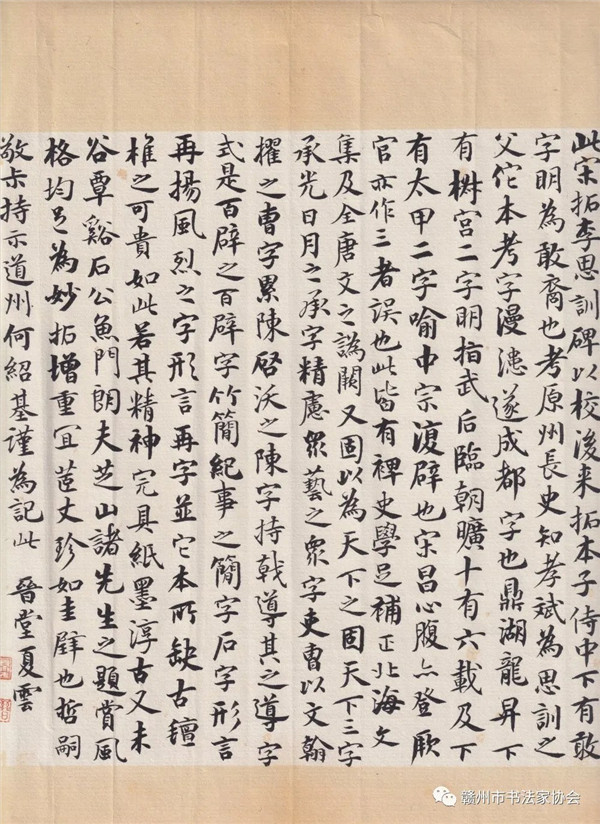 此宋拓李思訓碑以校後来拓本子侍中下有敢
字明為敢裔也考原州長史知孝斌為思訓之
父佗本考字漫漶遂成都字也鼎湖龍昇下
有樹宫二字明指武后臨朝曠十有六載及下
有太甲二字喻中宗復辟也宋昌心腹亦登厥
官亦作三者誤也此皆有裨史學足補正北海文
集及全唐文之譌闕又固以為天下之固天下三字
承光日月之承字精慮眾藝之眾字吏曹以文翰
擢之曹字累陳啓沃之陳字持戟導其之導字
式是百辟之百辟字竹簡紀事之簡字石字形言
再揚風烈之字形言再字並它本所缺古氊
椎之可貴如此若其精神完具紙墨淳古又未
谷覃谿石公魚門朗夫芝山諸先生之題賞風
格均足為妙拓增重宜茝丈珍如圭璧也哲嗣
敬㠯持示道州何紹基謹為記此 晉堂夏雲
赣州市书法家协会